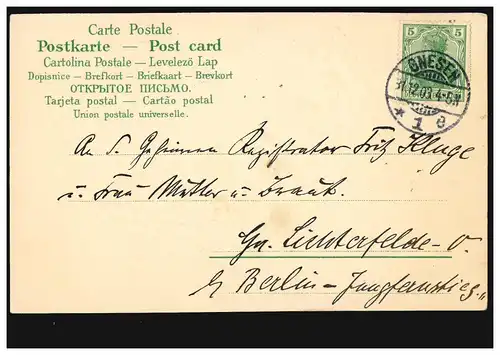 Carte Postale
Postkarte — Post card
Cartolina Postale — Levelező Lap
Dopisnice – Brefkort – Briefkaart – Brevkort
ОТКРЫТОЕ ПИСЬМО.
Tarjeta postal — Cartão postal
Union postale universelle.
5 5
GNESEN
31.12.03. 4-5N
* 1 d
An d. Geheimen Registrator Fritz Kluge
u. Frau Mutter u. Braut.
Gr. Lichterfelde-O.
b/ Berlin – Jungfernstieg